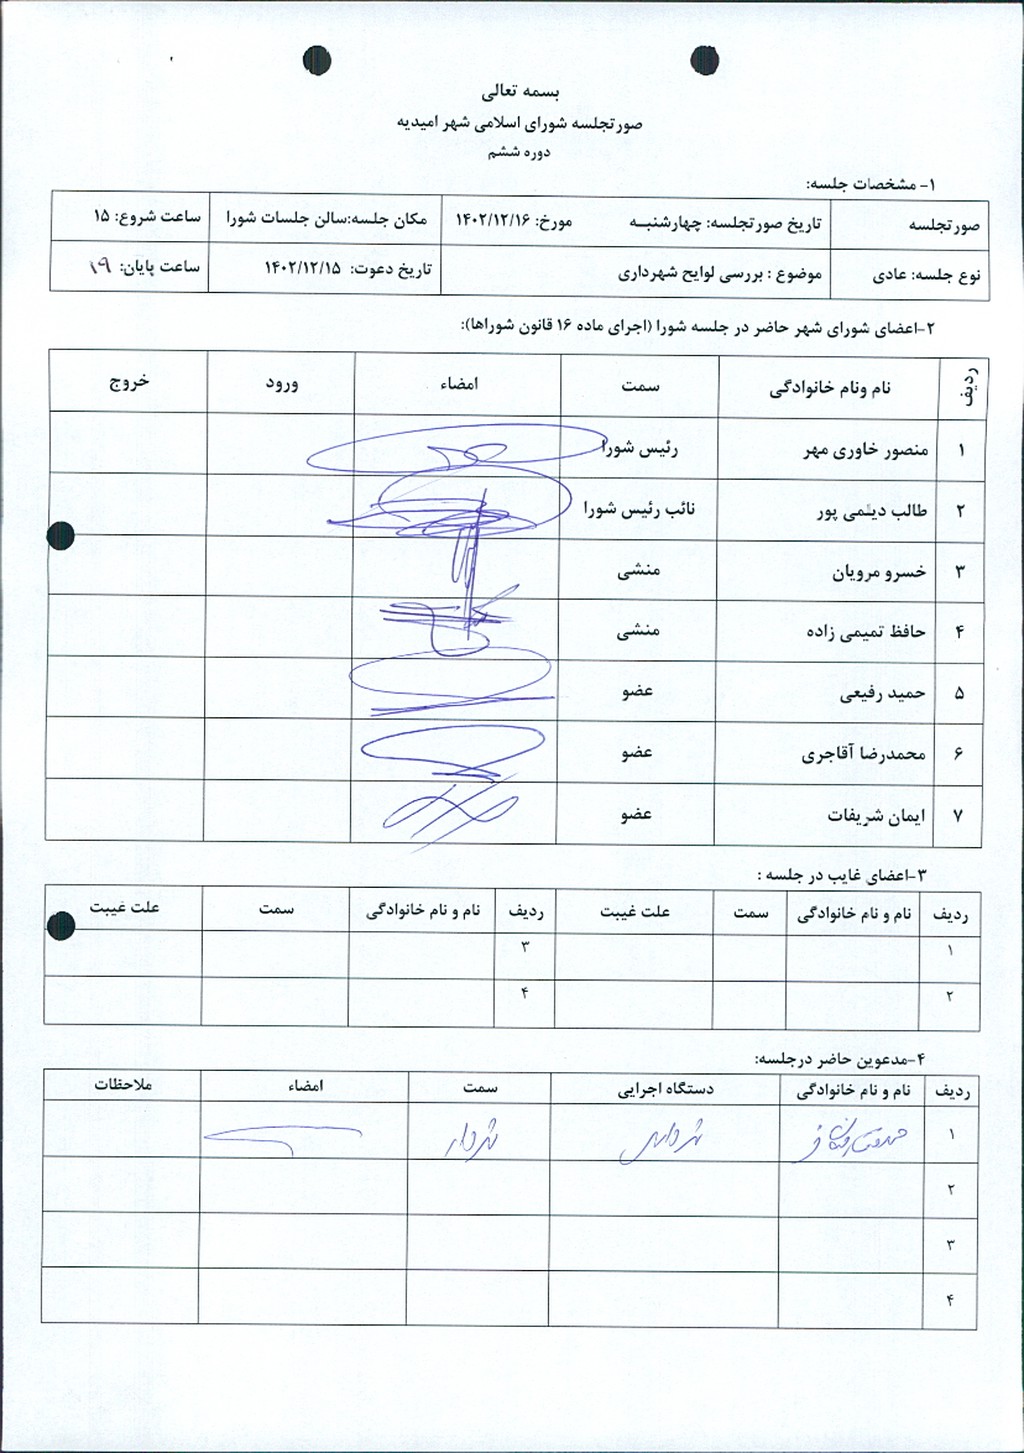 بسمه تعالی
صورتجلسه شورای اسلامی شهر امیدیه
دوره ششم
۱- مشخصات جلسه:
صورتجلسه تاریخ صورتجلسه: چهارشنبه مورخ: ۱۴۰۲/۱۲/۱۶ مکان جلسه:سالن جلسات شورا ساعت شروع: ۱۵
نوع جلسه: عادی موضوع : بررسی لوایح شهرداری تاریخ دعوت: ۱۴۰۲/۱۲/۱۵ ساعت پایان: ۱۹
۲-اعضای شورای شهر حاضر در جلسه شورا (اجرای ماده ۱۶ قانون شوراها):
ردیف نام ونام خانوادگی سمت امضاء ورود خروج
۱ منصور خاوری مهر رئیس شورا
۲ طالب دیلمی پور نائب رئیس شورا
۳ خسرو مرویان منشی
۴ حافظ تمیمی زاده منشی
۵ حمید رفیعی عضو
۶ محمدرضا آقاجری عضو
۷ ایمان شریفات عضو
۳-اعضای غایب در جلسه :
ردیف نام و نام خانوادگی سمت علت غیبت ردیف نام و نام خانوادگی سمت علت غیبت
۱ ۳
۲ ۴
۴-مدعوین حاضر درجلسه:
ردیف نام و نام خانوادگی دستگاه اجرایی سمت امضاء ملاحظات
۱ شهرداری شهردار
۲
۳
۴